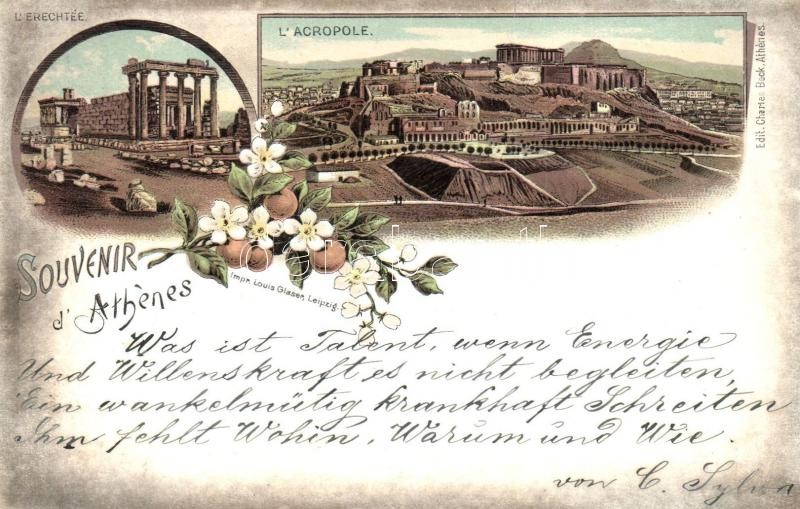 L'ERECHTÉE.
L'ACROPOLE.
Edit. Charles Beck, Athènes.
SOUVENIR
d'Athènes
Impr. Louis Glaser, Leipzig.
Was ist Talent, wenn Energie
Und Willenskraft es nicht begleiten,
Ein wankelmütig krankhaft Schreiten
Ihm fehlt Wohin, Warum und Wie.
von C. Sylva